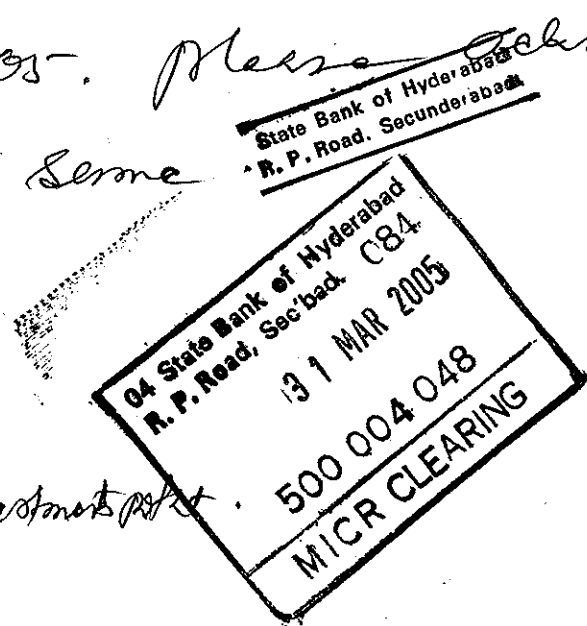 05. Please
State Bank of Hyderabad
R. P. Road. Secunderabad
same
04 State Bank of Hyderabad
R. P. Road, Sec'bad. 084
31 MAR 2005
500 004 048
MICR CLEARING